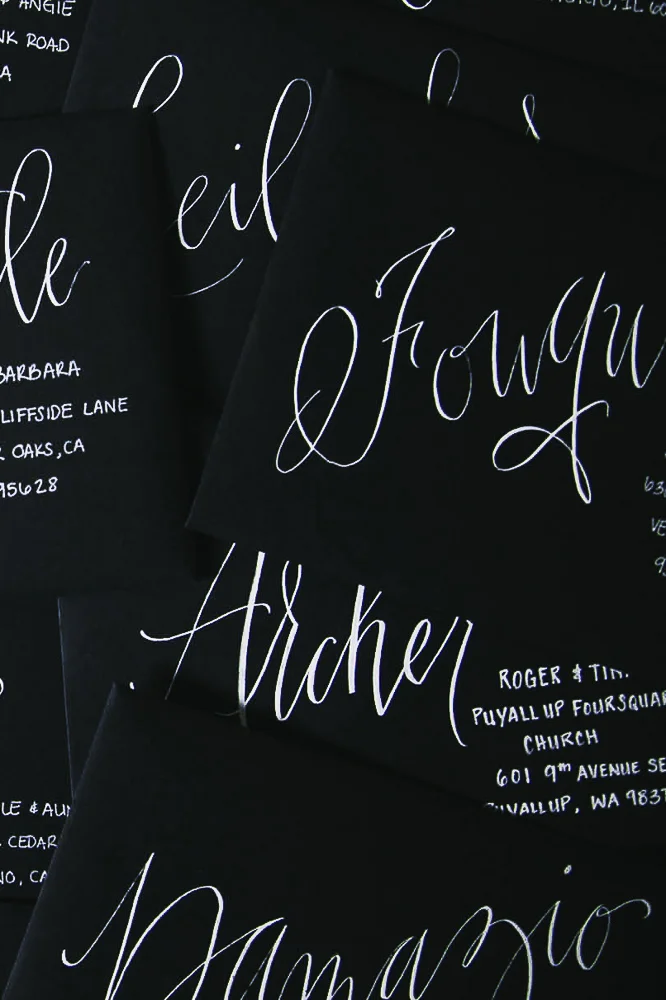 ANGIE
ROAD
A
, IL 60
eil
le
BARBARA
LIFFSIDE LANE
OAKS, CA
95628
Fouqu
63
VE
9
Archer
ROGER &
PUYALLUP FOURSQUAR
CHURCH
601 9TH AVENUE SE
UYALLUP, WA 9837
LE & AU
CEDAR
NO, CA
Damazio